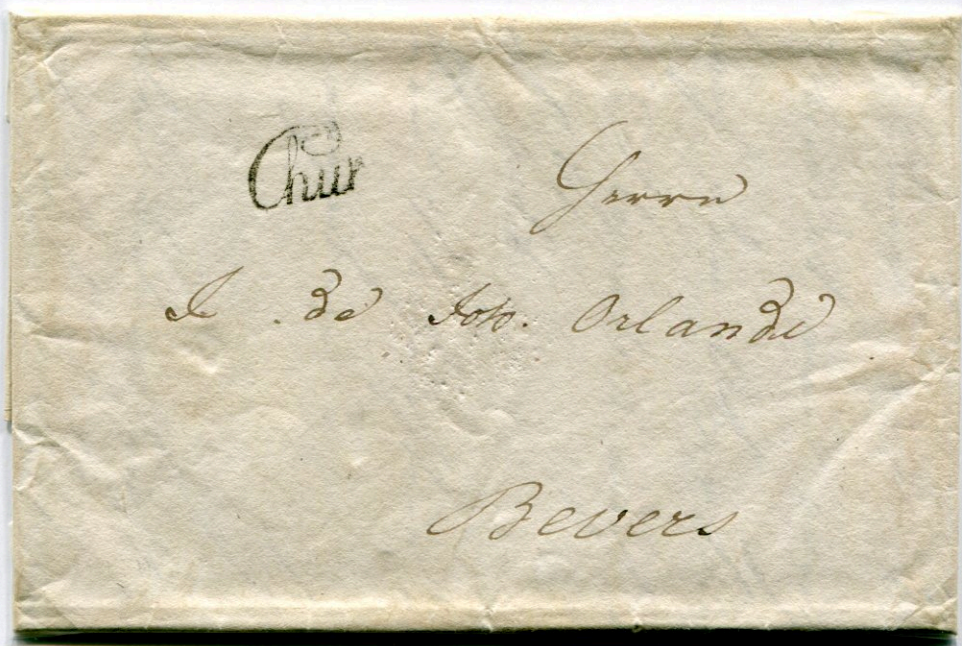 Chur
Herrn
J. de Joh. Orlandi
Bevers